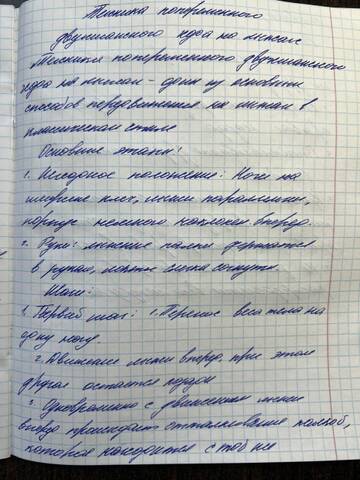 Техника попеременного
двухшажного хода на лыжах
Техника попеременного двухшажного
хода на лыжах - один из основных
способов передвижения на лыжах в
классическом стиле
Основные этапы:
1. Исходное положение: Ноги на
ширине плеч, лыжи параллельны,
корпус немного наклонен вперед.
2. Руки: лыжные палки держатся
в руках, локти слегка согнуты.
Шаги:
1. Первый шаг: 1. Перенос веса тела на
одну ногу.
2. Движение лыжи вперед, при этом
другая остается позади
3. Одновременно с движением лыжи
вперед происходит отталкивание палкой,
которая находится с той же